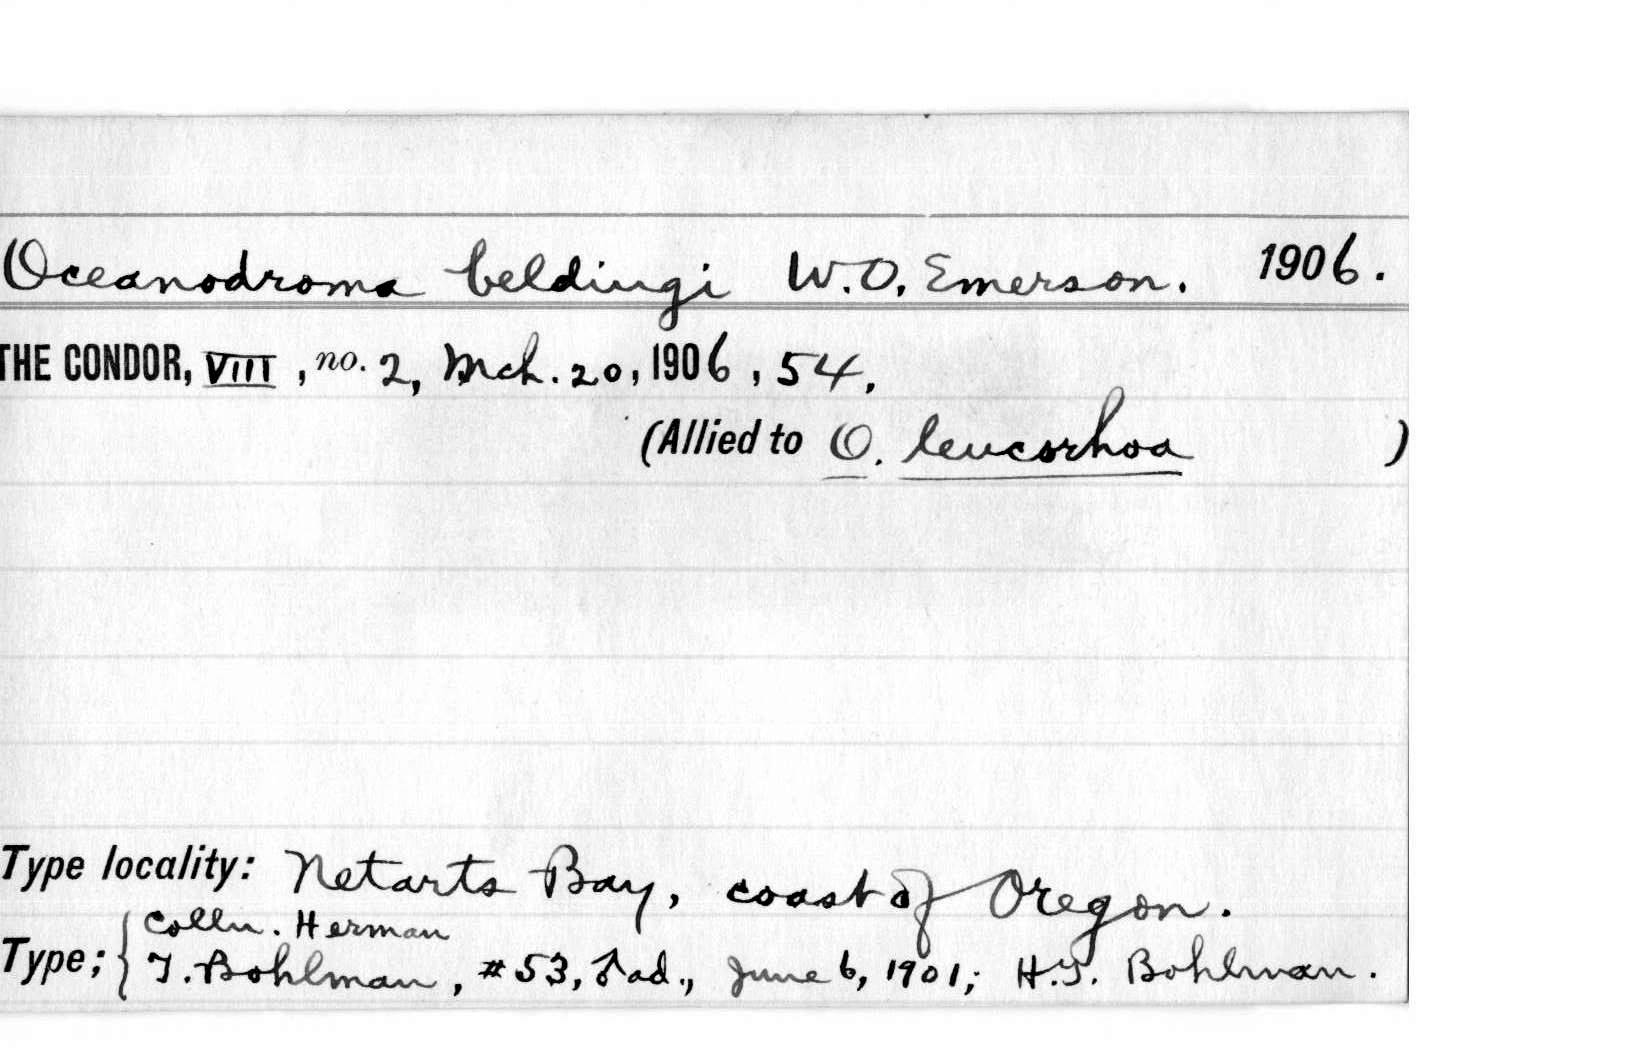 Oceanodroma beldingi W.O. Emerson. 1906.
THE CONDOR, VIII, no. 2, Mch. 20, 1906, 54.
(Allied to O. leucorhoa )
Type locality: Netarts Bay, coast of Oregon.
Colln. Herman
Type; { T. Bohlman, #53, ♂ ad., June 6, 1901; H.T. Bohlman.